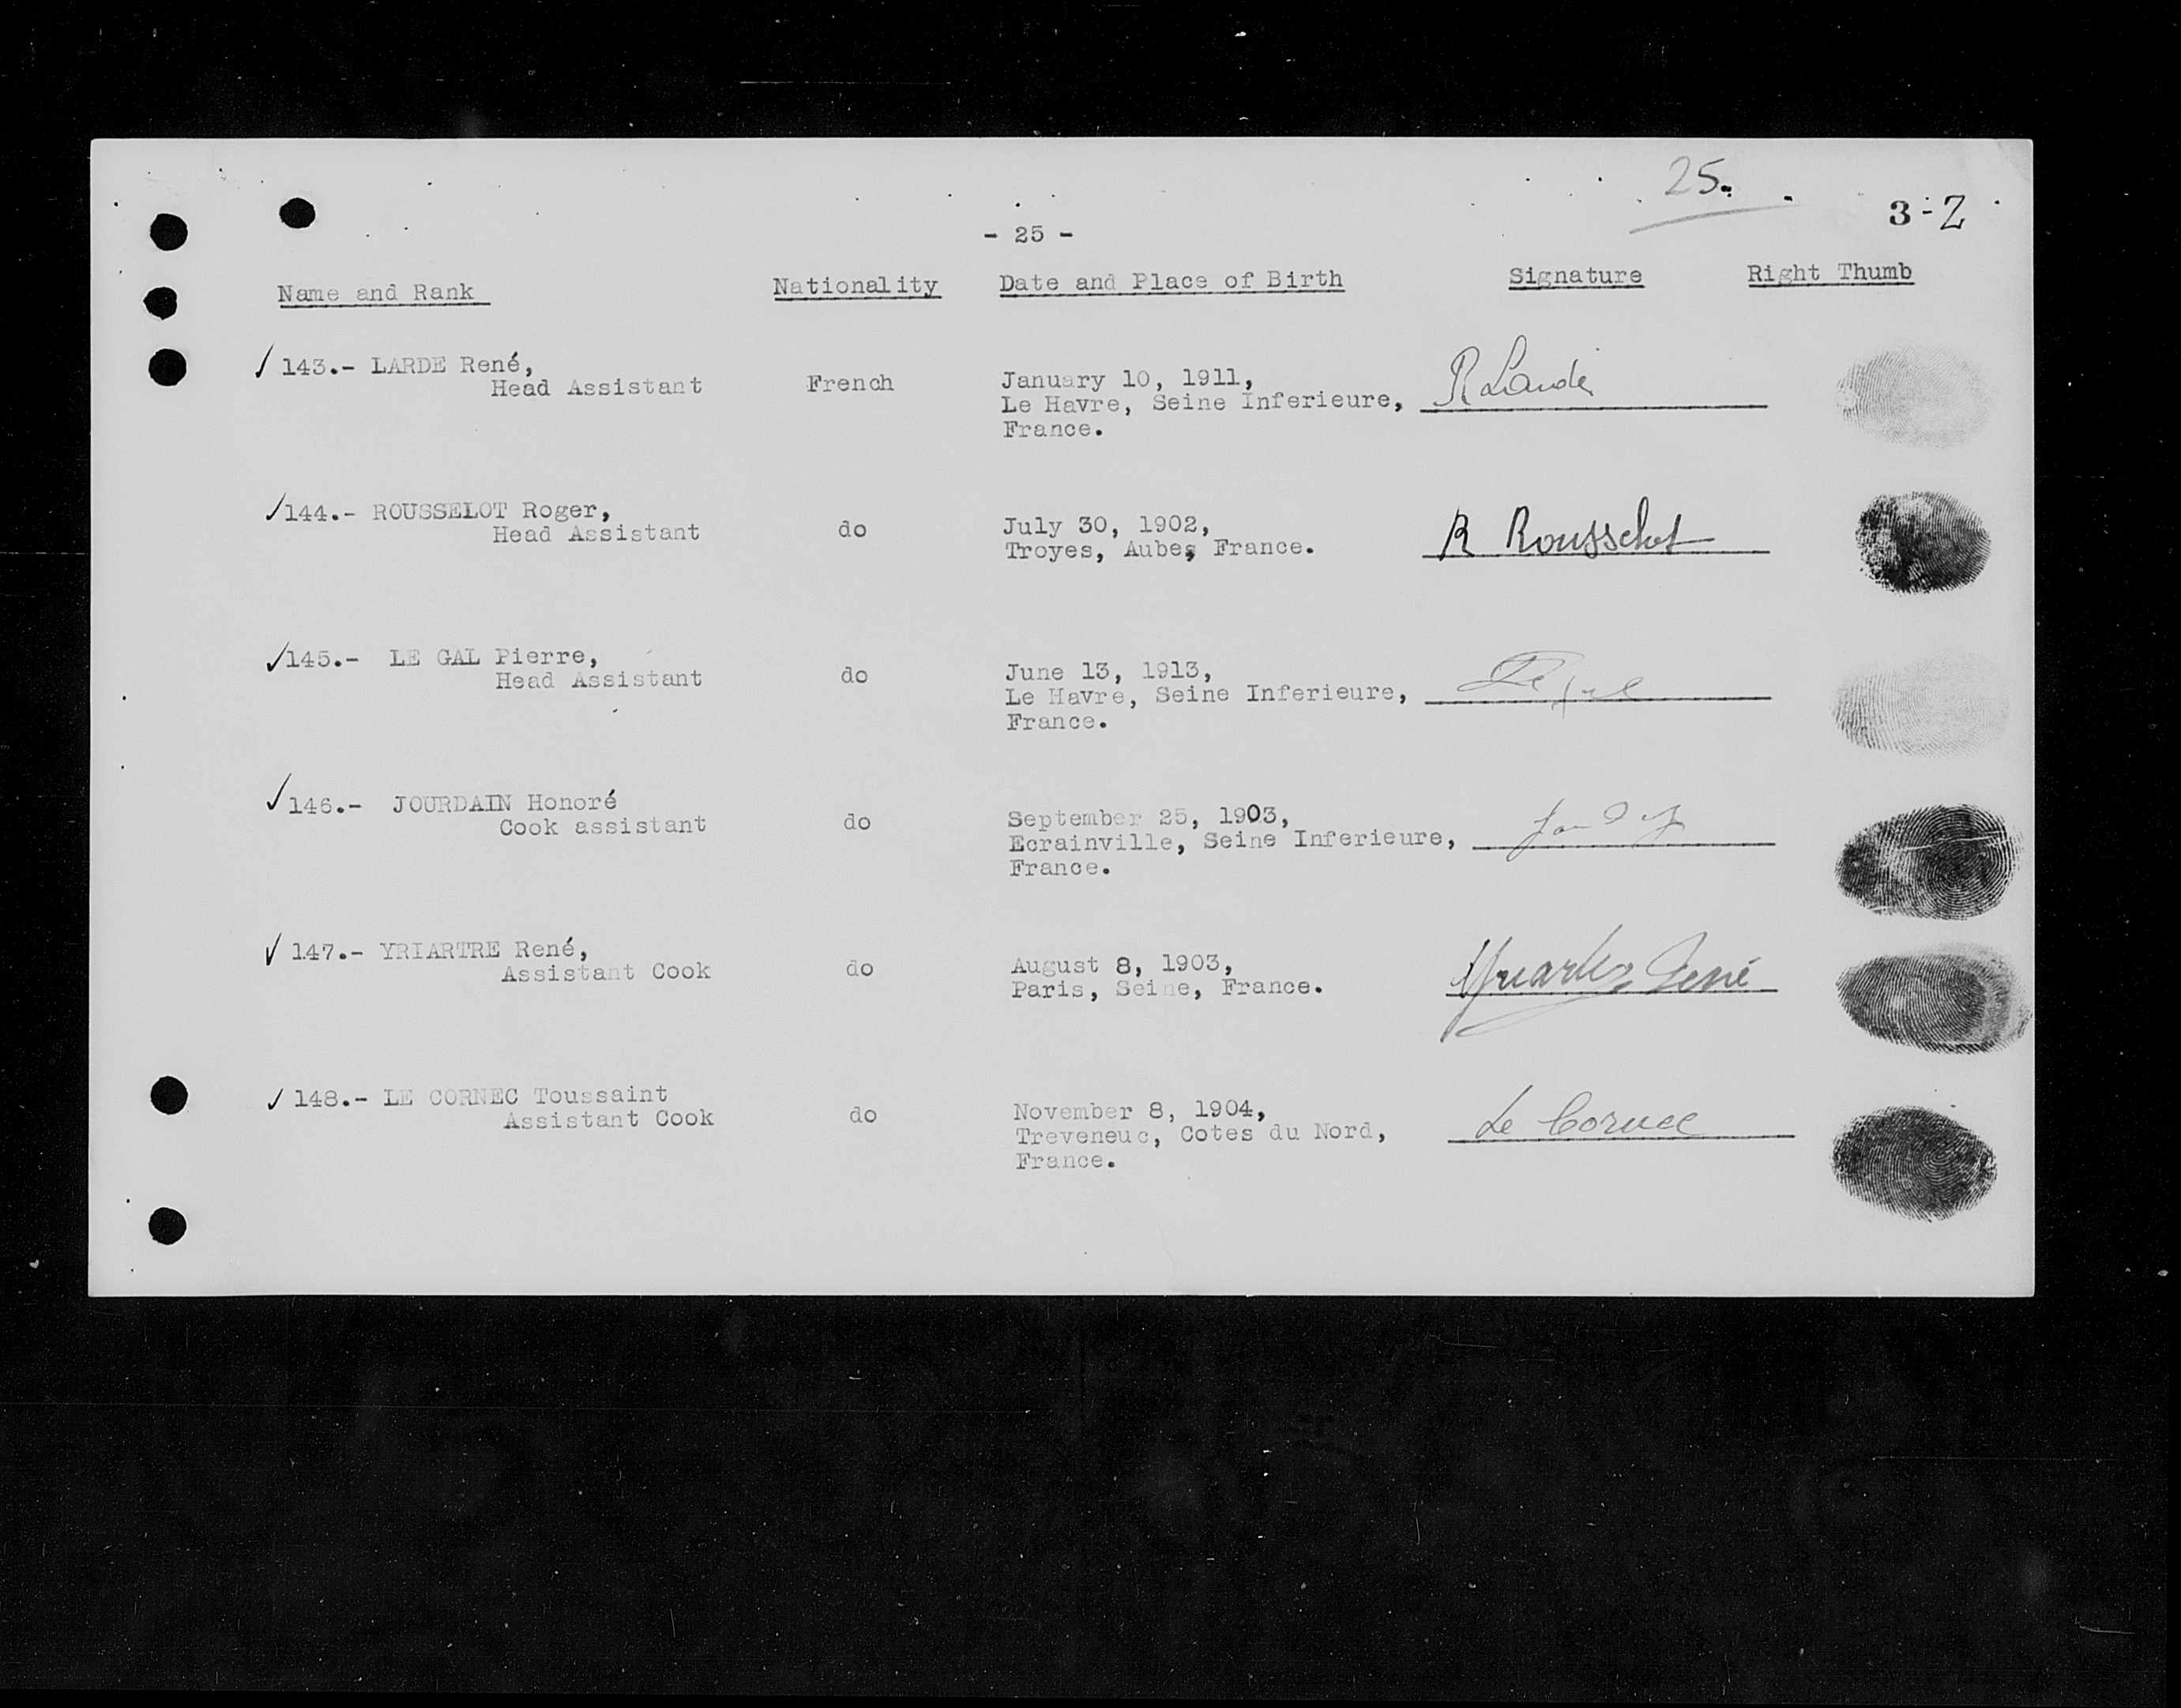 25.
3-Z
- 25 -
Name and Rank Nationality Date and Place of Birth Signature Right Thumb
✓ 143.- LARDE René, January 10, 1911, R Larde
Head Assistant French Le Havre, Seine Inferieure,
France.
✓ 144.- ROUSSELOT Roger, July 30, 1902, R Rousselot
Head Assistant do Troyes, Aube, France.
✓ 145.- LE GAL Pierre, June 13, 1913,
Head Assistant do Le Havre, Seine Inferieure,
France.
✓ 146.- JOURDAIN Honoré September 25, 1903,
Cook assistant do Ecrainville, Seine Inferieure,
France.
✓ 147.- YRIARTRE René, August 8, 1903, René
Assistant Cook do Paris, Seine, France.
✓ 148.- LE CORNEC Toussaint November 8, 1904, Le Cornec
Assistant Cook do Treveneuc, Cotes du Nord,
France.